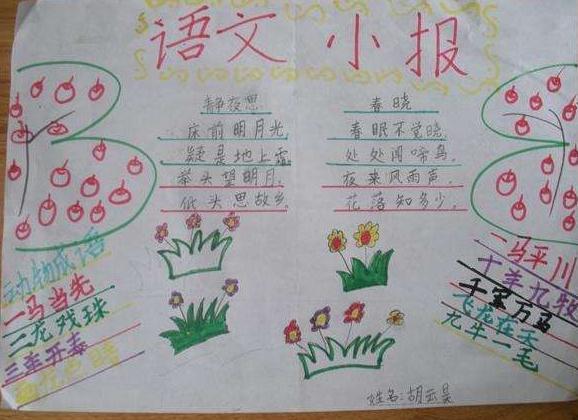 语文小报
静夜思
床前明月光,
疑是地上霜
举头望明月,
低头思故乡.
春晓
春眠不觉晓,
处处闻啼鸟,
夜来风雨声,
花落知多少.
动物成语
一马当先
二龙戏珠
三羊开泰
画龙点睛
一马平川
十羊九牧
千军万马
飞龙在天
九牛一毛
姓名:胡云昊